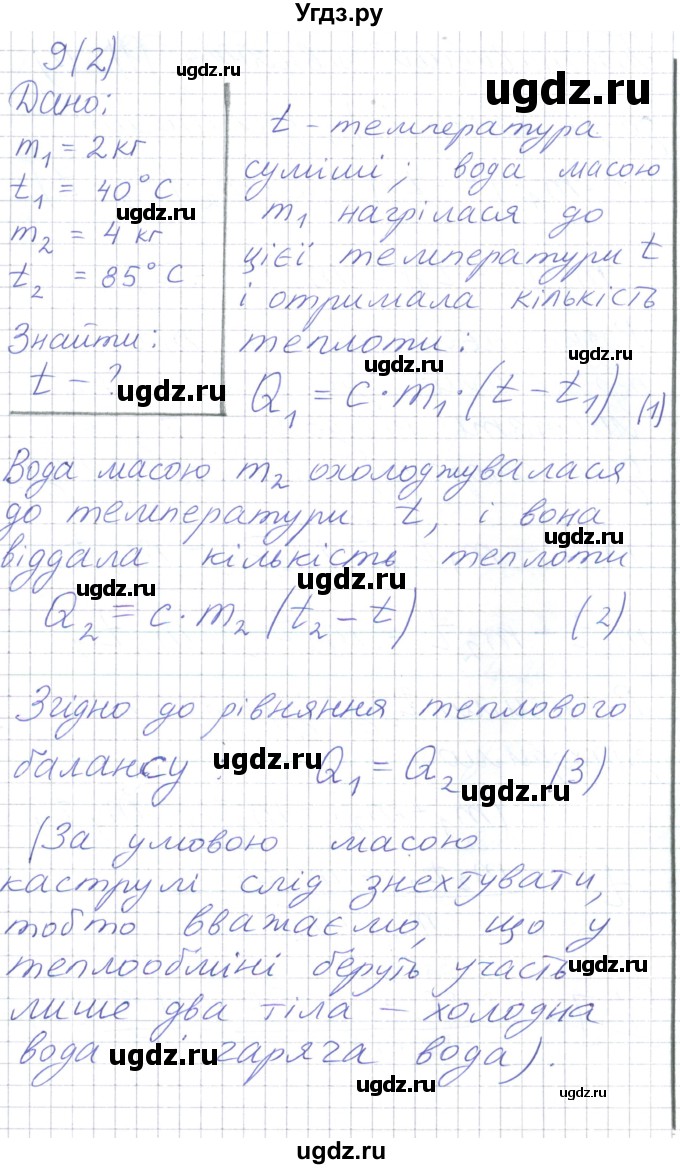 Угдз.ру
9(2)
ugdz.ru
ugdz.ru
Дано:
m₁ = 2 кг
t₁ = 40°C
ugdz.ru
m₂ = 4 кг
t₂ = 85°C
Знайти:
t - ?
ugdz.ru
t - температура
суміші; вода масою
ugdz.ru
m₁ нагрілася до
цієї температури t
і отримала кількість
теплоти:
ugdz.ru
Q₁ = c · m₁ · (t - t₁) (1)
ugdz.ru
Вода масою m₂ охолоджувалася
до температури t, і вона
ugdz.ru
віддала кількість теплоти
ugdz.ru
ugdz.ru
Q₂ = c · m₂ (t₂ - t) (2)
ugdz.ru
Згідно до рівняння теплового
балансу: Q₁ = Q₂ (3)
ugdz.ru
ugdz.ru
(За умовою масою
каструлі слід знехтувати,
тобто вважаємо, що у
теплообміні беруть участь
лише два тіла - холодна
вода і гаряча вода).
ugdz.ru
ugdz.ru
ugdz.ru
ugdz.ru